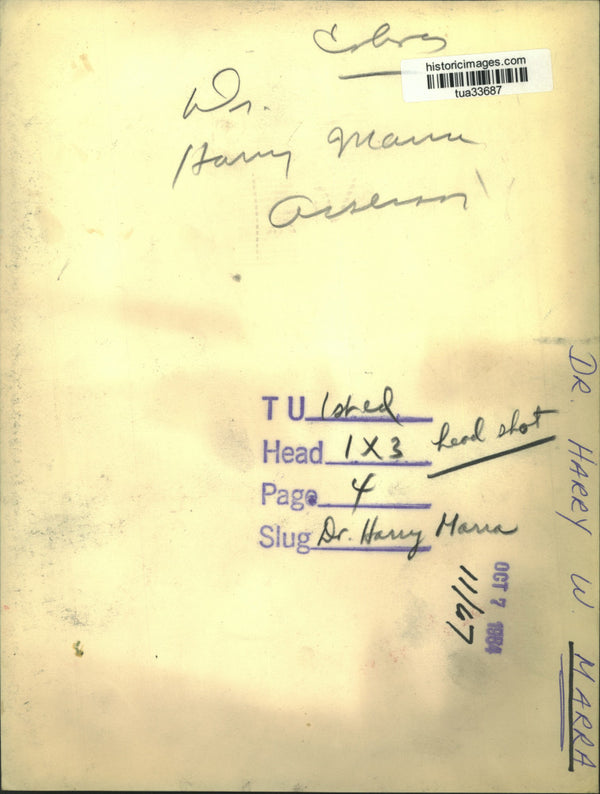 historicimages.com
tua33687
Dr.
Harry Marra
TU 1st ed.
Head 1 X 3 head shot
Page 4
Slug Dr. Harry Marra
OCT 7 1984
11/67
DR. HARRY W. MARRA